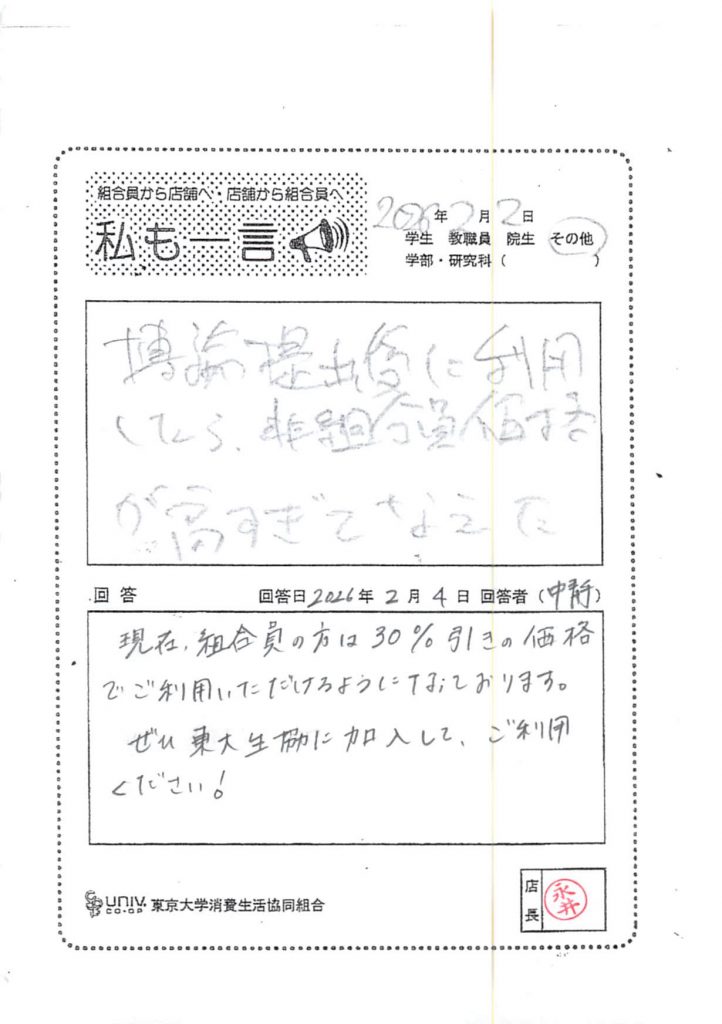 組合員から店舗へ・店舗から組合員へ
私も一言
2026年2月2日
学生 教職員 院生 その他
学部・研究科( )
博論提出後に利用
したら、非組合員価格
が高すぎてなえた
回答 回答日2026年2月4日 回答者(中静)
現在、組合員の方は30%引きの価格
でご利用いただけるようになっております。
ぜひ東大生協に加入して、ご利用
ください!
UNIV. CO-OP 東京大学消費生活協同組合
店長 永井